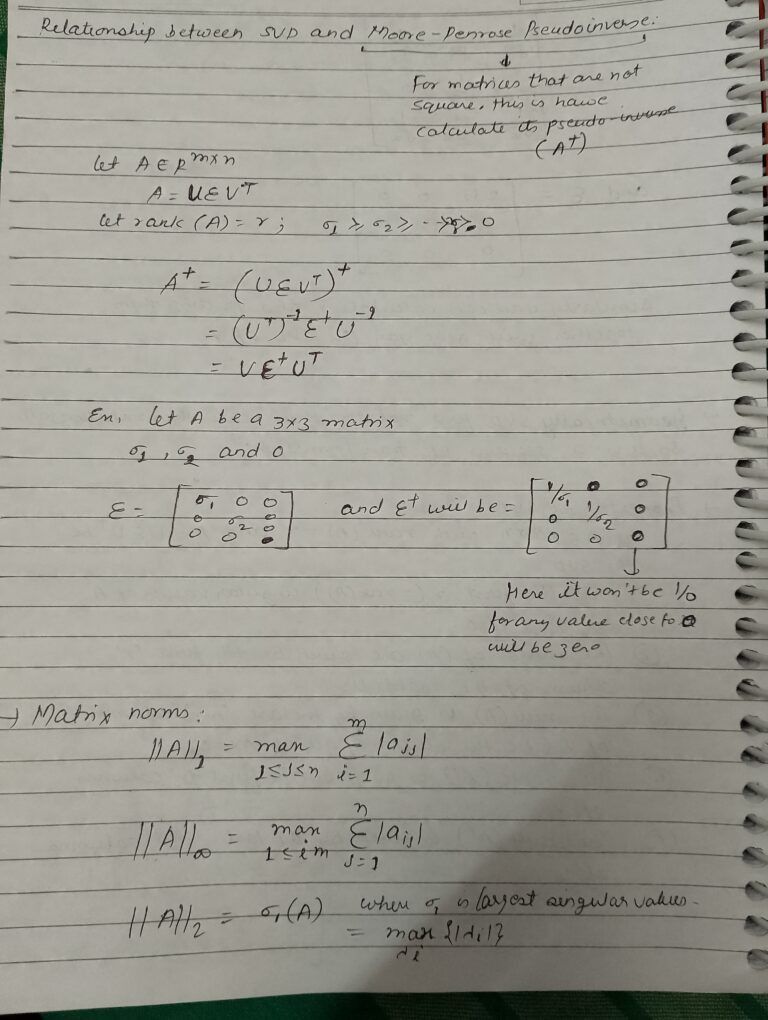 Relationship between SVD and Moore-Penrose Pseudoinverse:
For matrices that are not
square, this is how
calculate its pseudo-inverse
(A⁺)
let A ∈ R^{m×n}
A = UΣV^T
let rank (A) = r ; σ₁ ≥ σ₂ ≥ ... ≥ 0
A⁺ = (UΣV^T)⁺
= (V^T)^{-1} Σ⁺ U^{-1}
= VΣ⁺U^T
Ex, let A be a 3x3 matrix
σ₁, σ₂ and 0
Σ = [σ₁ 0 0; 0 σ₂ 0; 0 0 0] and Σ⁺ will be = [1/σ₁ 0 0; 0 1/σ₂ 0; 0 0 0]
Here it won't be 1/0
for any value close to 0
will be zero
→ Matrix norms:
||A||₁ = max_{1≤j≤n} Σ_{i=1}^{m} |aᵢⱼ|
||A||_∞ = max_{1≤i m} Σ_{j=1}^{n} |aᵢⱼ|
||A||₂ = σ₁(A) where σ₁ is largest singular values.
= max_{λi} {|λᵢ|}